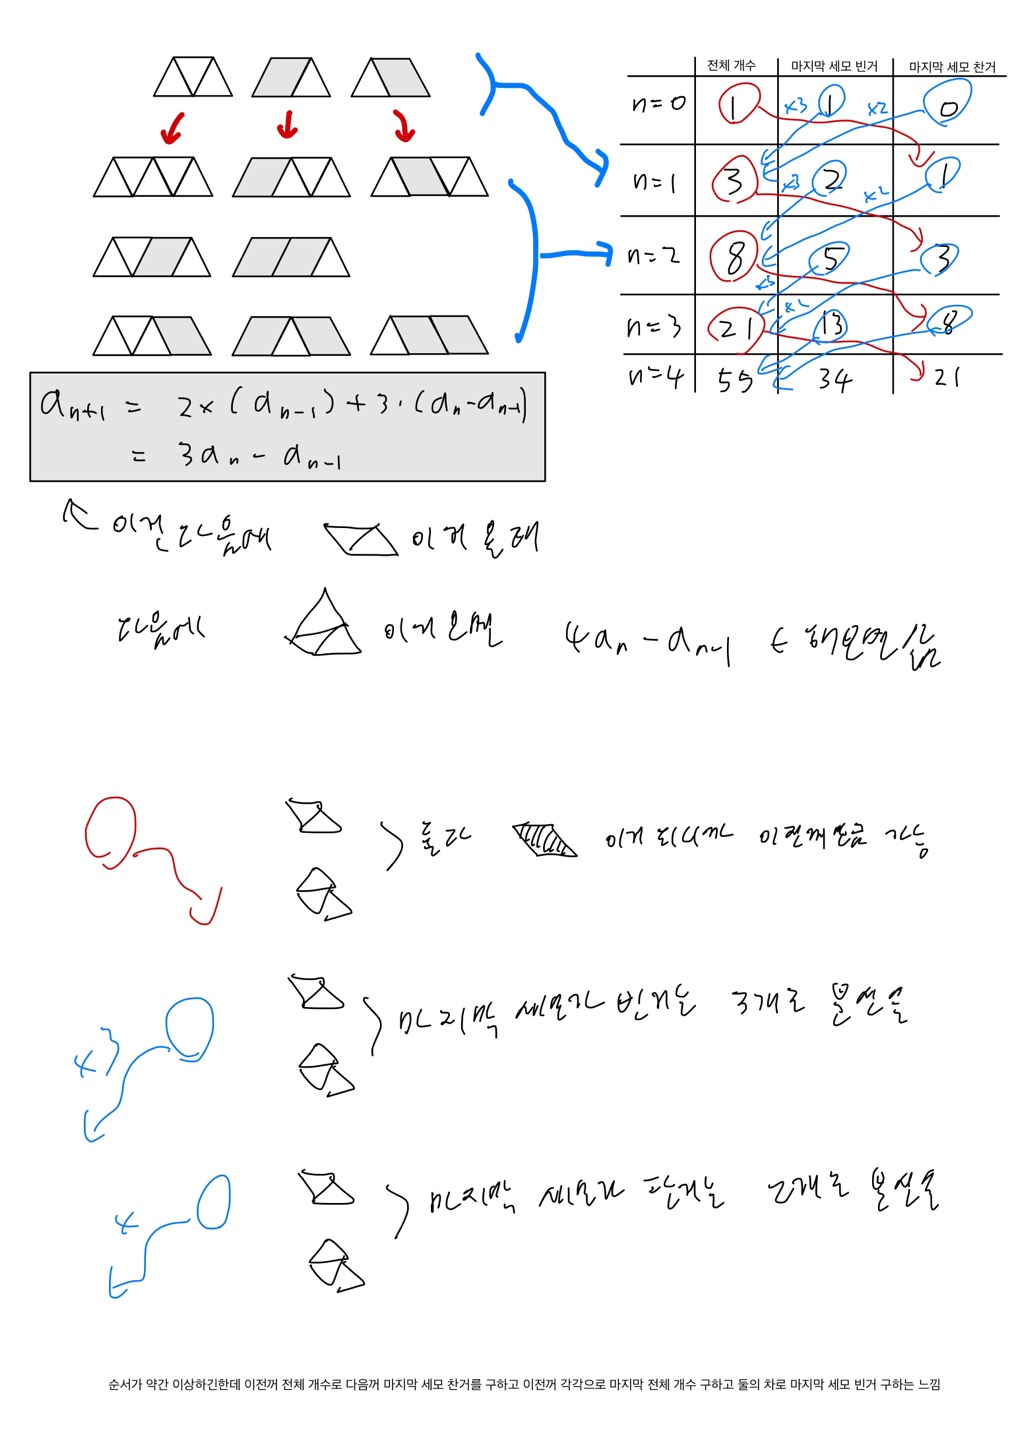 전체 개수 마지막 세모 빈거 마지막 세모 찬거
n=0 1 ×3 1 ×2 0
n=1 3 ×3 2 ×2 1
n=2 8 5 3
×3
n=3 21 ×2 13 8
n=4 55 34 21
a_{n+1} = 2×(a_{n-1}) + 3·(a_n - a_{n-1})
= 3a_n - a_{n-1}
이건 다음에 이거 올때
다음에 이거 오면 4a_n - a_{n-1} 해보면 됨
둘다 이게 되니까 이전꺼만큼 가능
마지막 세모가 빈거는 3개로 분신술
×3
마지막 세모가 찬거는 2개로 분신술
×
순서가 약간 이상하긴한데 이전꺼 전체 개수로 다음꺼 마지막 세모 찬거를 구하고 이전꺼 각각으로 마지막 전체 개수 구하고 둘의 차로 마지막 세모 빈거 구하는 느낌